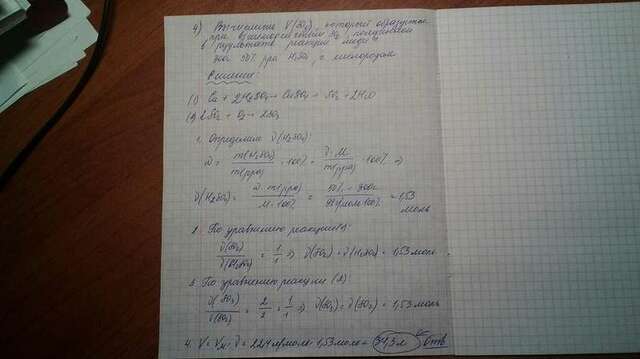 4) Вычислите V(SO3), который образуется
при взаимодействии SO2, полученного
в результате реакции меди и
300г 50% р-ра H2SO4 с кислородом
Решение:
(1) Cu + 2H2SO4 → CuSO4 + SO2 + 2H2O
(2) 2SO2 + O2 → 2SO3
1. Определяем ν(H2SO4):
ω = m(H2SO4) / m(р-ра) · 100% = ν · M / m(р-ра) · 100% ⇒
ν(H2SO4) = ω · m(р-ра) / M · 100% = 50% · 300г / 98г/моль · 100% = 1,53 моль
2. По уравнению реакции (1):
ν(SO2) / ν(H2SO4) = 1/1 ⇒ ν(SO2) = ν(H2SO4) = 1,53 моль.
3. По уравнению реакции (2):
ν(SO2) / ν(SO3) = 2/2 = 1/1 ⇒ ν(SO3) = ν(SO2) = 1,53 моль
4. V = Vм · ν = 22,4 л/моль · 1,53 моль = 34,3 л Отв